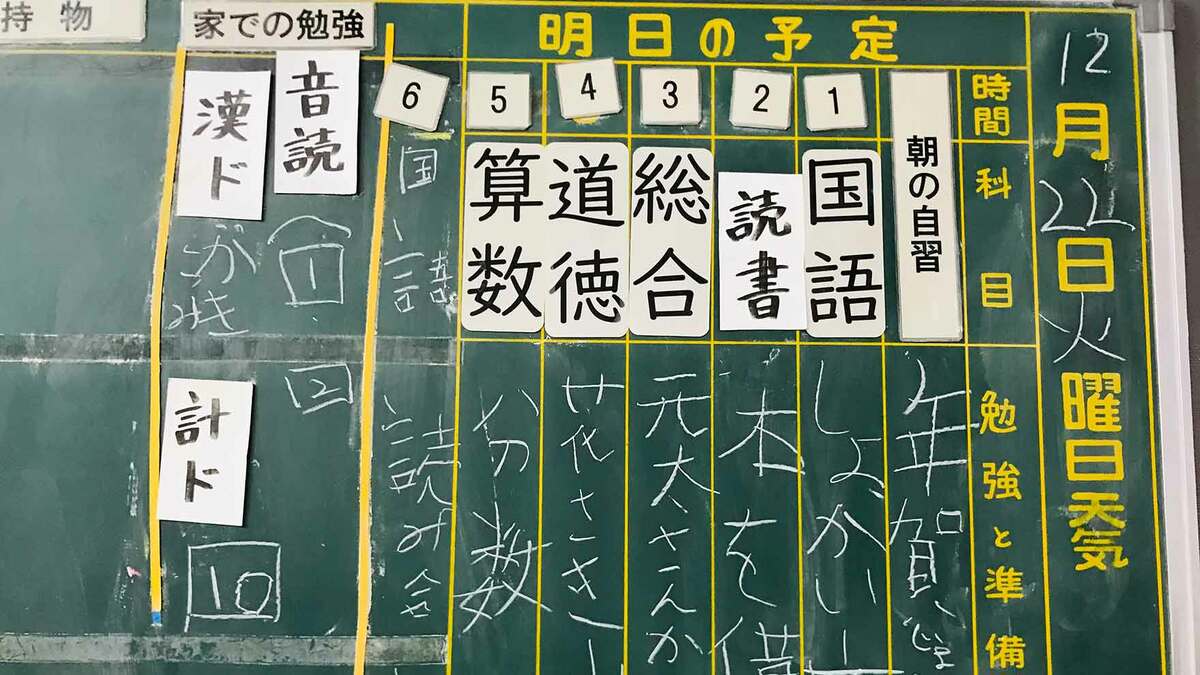 明日の予定
12月22日火曜日天気
時間
科目
勉強と準備
朝の自習
年賀
1
国語
しょかい
2
読書
本を借
3
総合
元太さんか
4
道徳
花さき
5
算数
分数
6
国語
読み合
家での勉強
音読
1
2
漢ド
がみき
計ド
10
持物